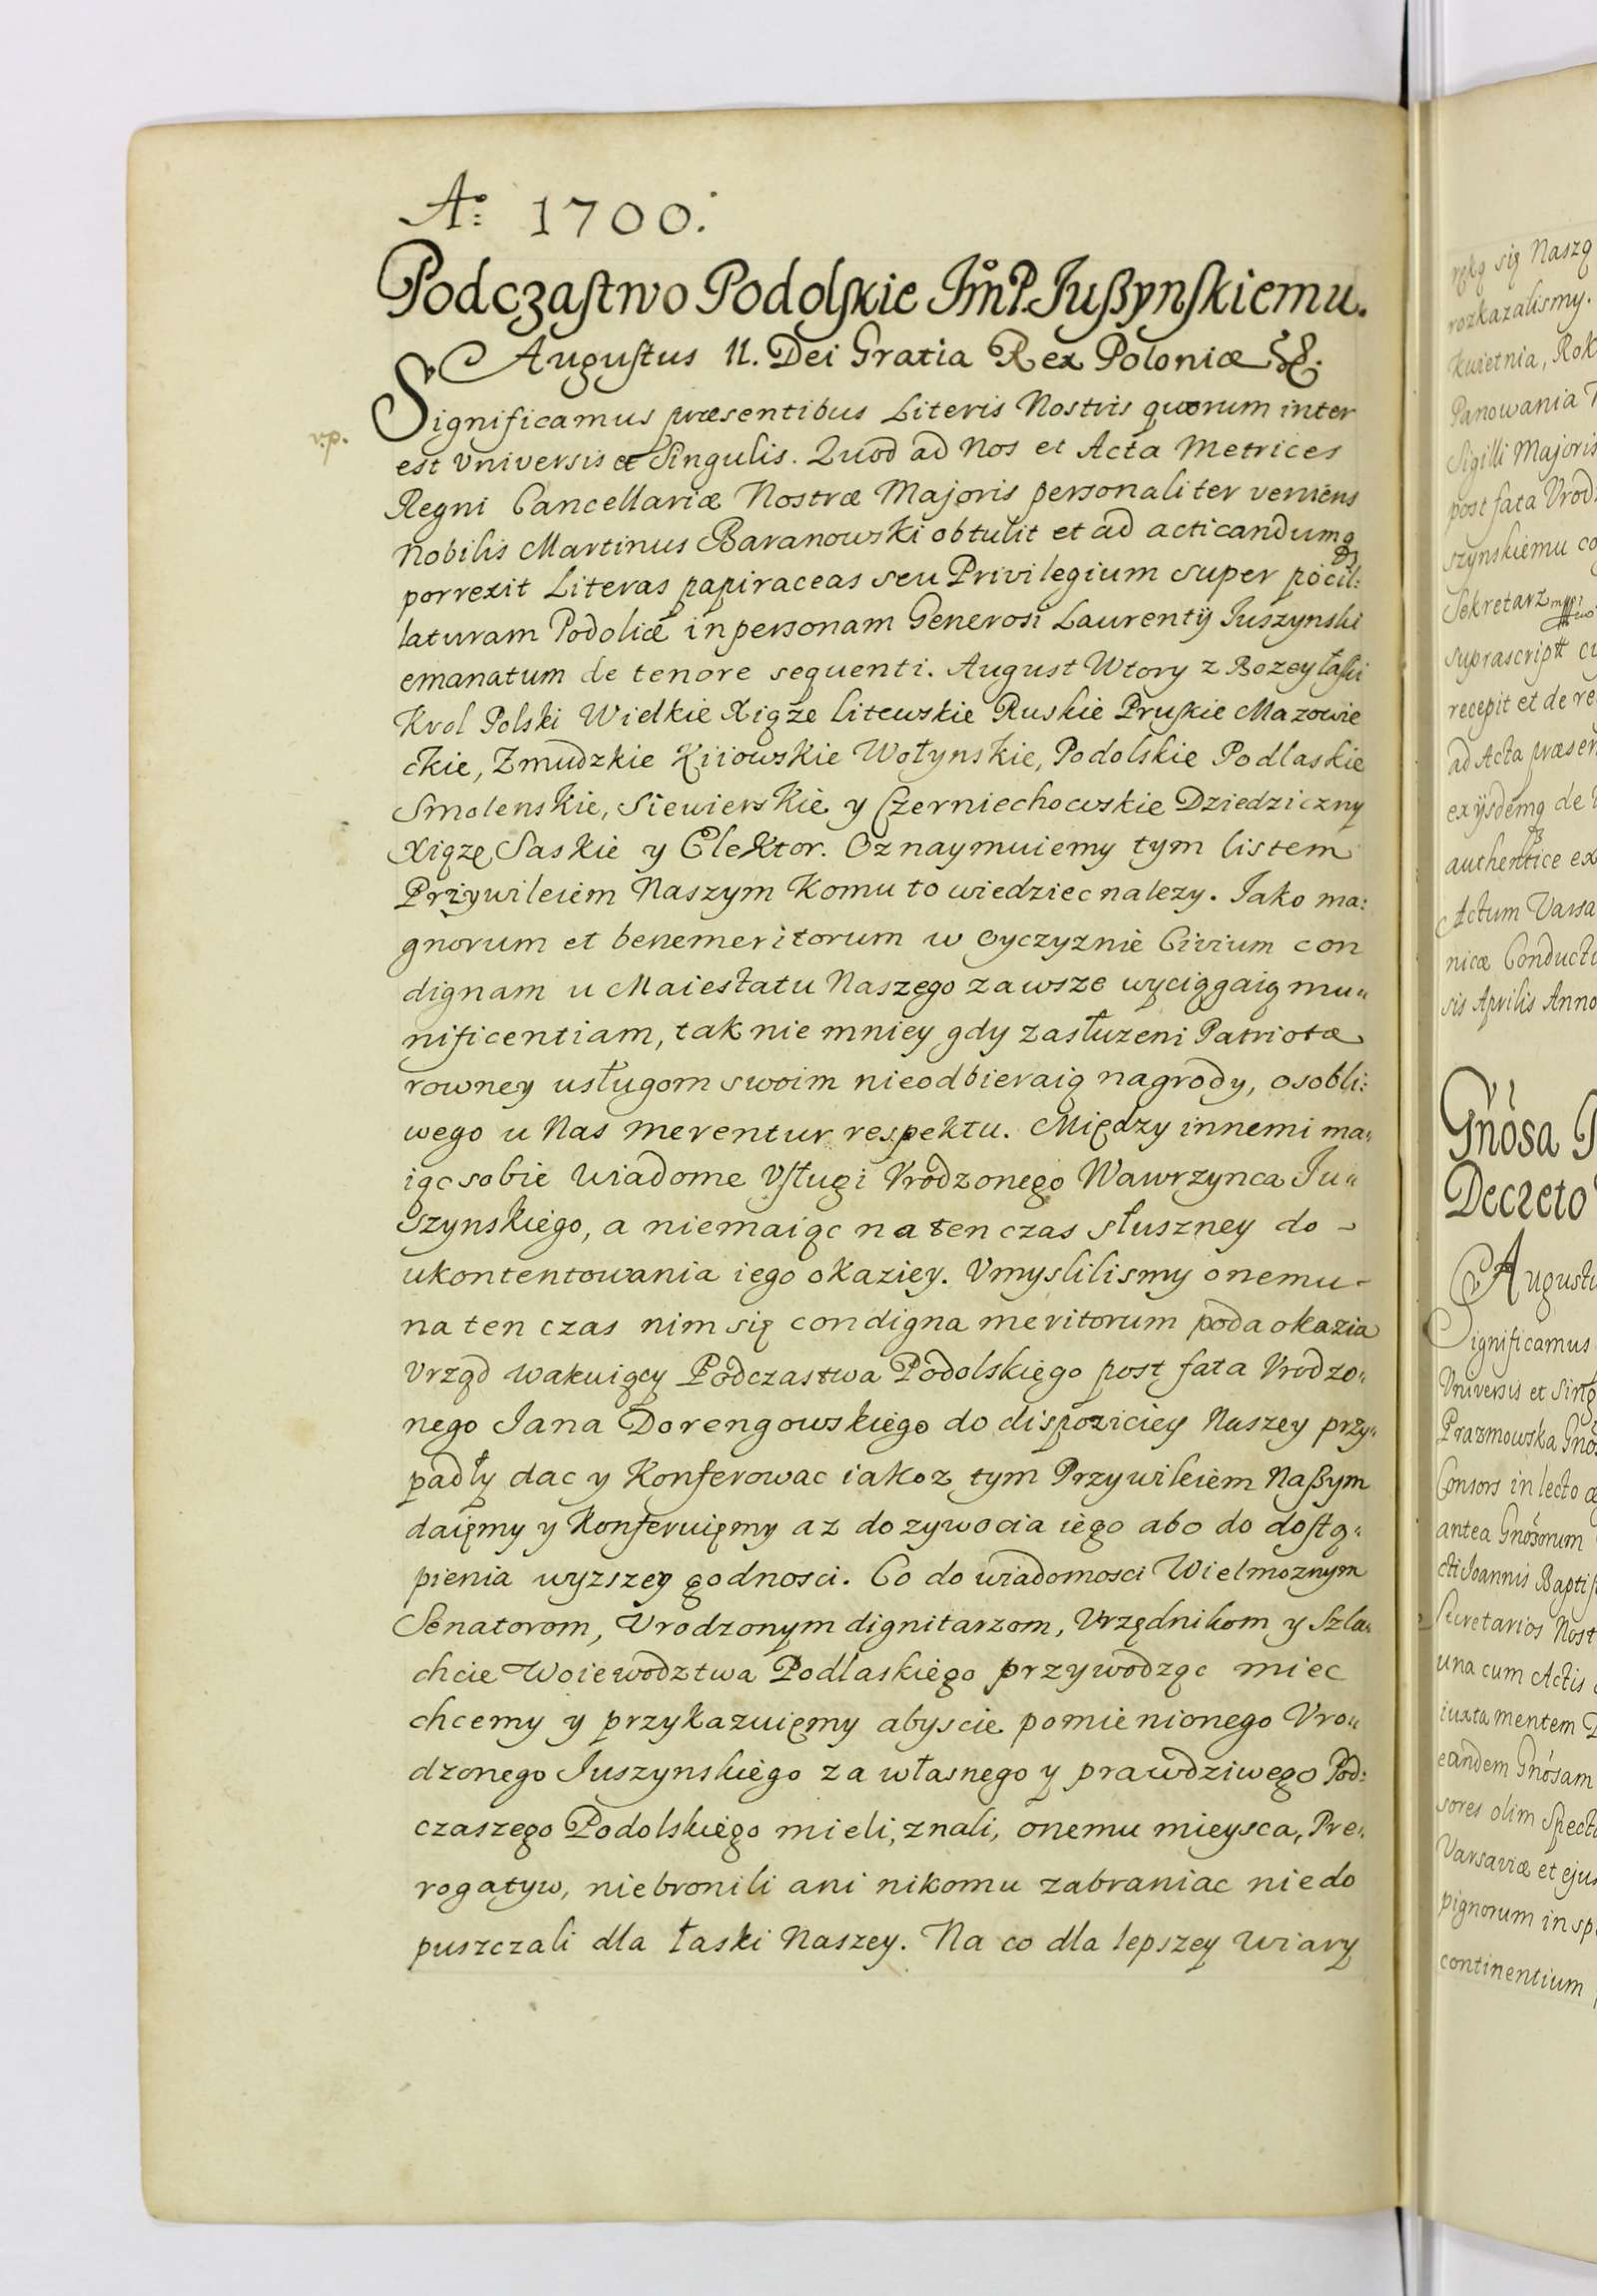 Aº: 1700.
Podczastwo Podolskie Jm̊P. Jußynskiemu.
Augustus II. Dei Gratia Rex Poloniæ &c.
Significamus præsentibus Literis Nostris quorum inter
v.p.
est Universis et Singulis. Quod ad Nos et Acta Metrices
Regni Cancellariæ Nostræ Majoris personaliter veniens
Nobilis Martinus Baranowski obtulit et ad acticandum
porrexit Literas papiraceas seu Privilegium super pocil:
laturam Podoliæ in personam Generosi Laurentij Juszynski
emanatum de tenore sequenti. August Wtory z Bozey łaski
Krol Polski Wielkie Xiąże Litewskie Ruskie Pruskie Mazowie
ckie, Zmudzkie Kiiowskie Wołynskie, Podolskie Podlaskie
Smolenskie, Siewierskie y Czerniechowskie Dziedziczny
Xiązę Saskie y Elektor. Oznaymuiemy tym listem
Przywileiem Naszym Komu to wiedziec nalezy. Jako ma:
gnorum et benemeritorum w Oyczyznie Civium con
dignam u Maiestatu Naszego zawsze wyciągaią mu„
nificentiam, tak nie mniey gdy zasłuzeni Patriotæ
rowney usługom swoim nieodbieraią nagrody, osobli:
wego u Nas merentur respektu. Między innemi ma„
iąc sobie wiadome Usługi Urodzonego Wawrzynca Ju„
szynskiego, a niemaiąc na ten czas słuszney do -
ukontentowania iego okaziey. Umyslilismy onemu -
na ten czas nim się condigna meritorum poda okazia
Urząd wakuiący Podczastwa Podolskiego post fata Urodzo„
nego Jana Dorengowskiego do dispoziciey Naszey przy„
padły dac y Konferowac iakoz tym Przywileiem Naßym
daięmy y Konferuięmy az do zywocia iego abo do dostą„
pienia wyzszey godnosci. Co do wiadomosci Wielmoznym
Senatorom, Urodzonym dignitarzom, Urzędnikom y Szla„
chcie Woiewodztwa Podlaskiego przywodząc miec
chcemy y przykazuięmy abyscie pomienionego Uro„
dzonego Juszynskiego za własnego y prawdziwego Pod:
czaszego Podolskiego mieli, znali, onemu mieysca, Pre„
rogatyw, niebronili ani nikomu zabraniac niedo
puszczali dla łaski Naszey. Na co dla lepszey wiary
ręką się Naszą
rozkazalismy.
Kwietnia, Rok
Panowania
Sigilli Majoris
post fata Urod
szynskiemu
Sekretarz
suprascript
recepit et de re
ad Acta præsen
exijsdemq de
authentice ex
Actum Varsa
nicæ Conducto
sis Aprilis Anno
Gnosa
Decreto
Augustu
Significamus
Universis et Sing
Prazmowska Gno
Consors in lecto
antea Gnosorum
cti Joannis Baptis
Secretarios Nost
una cum Actis
iuxta mentem
eandem Gnosam
sores olim Specta
Varsaviæ et eju
pignorum in sp
continentium